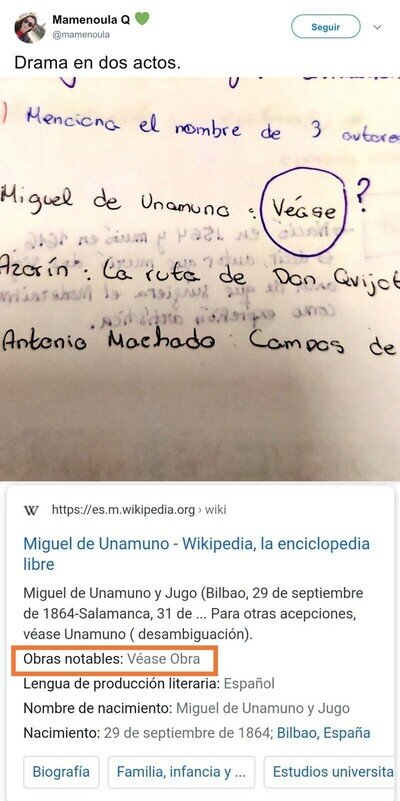 Mamenoula Q
@mamenoula
Seguir
Drama en dos actos.
) Menciona el nombre de 3 autores
Miguel de Unamuno : Véase ?
Azorín : La ruta de Don Quijot
Antonio Machado : Campos de
W https://es.m.wikipedia.org › wiki
Miguel de Unamuno - Wikipedia, la enciclopedia
libre
Miguel de Unamuno y Jugo (Bilbao, 29 de septiembre
de 1864-Salamanca, 31 de ... Para otras acepciones,
véase Unamuno ( desambiguación).
Obras notables: Véase Obra
Lengua de producción literaria: Español
Nombre de nacimiento: Miguel de Unamuno y Jugo
Nacimiento: 29 de septiembre de 1864; Bilbao, España
Biografía
Familia, infancia y ...
Estudios universita